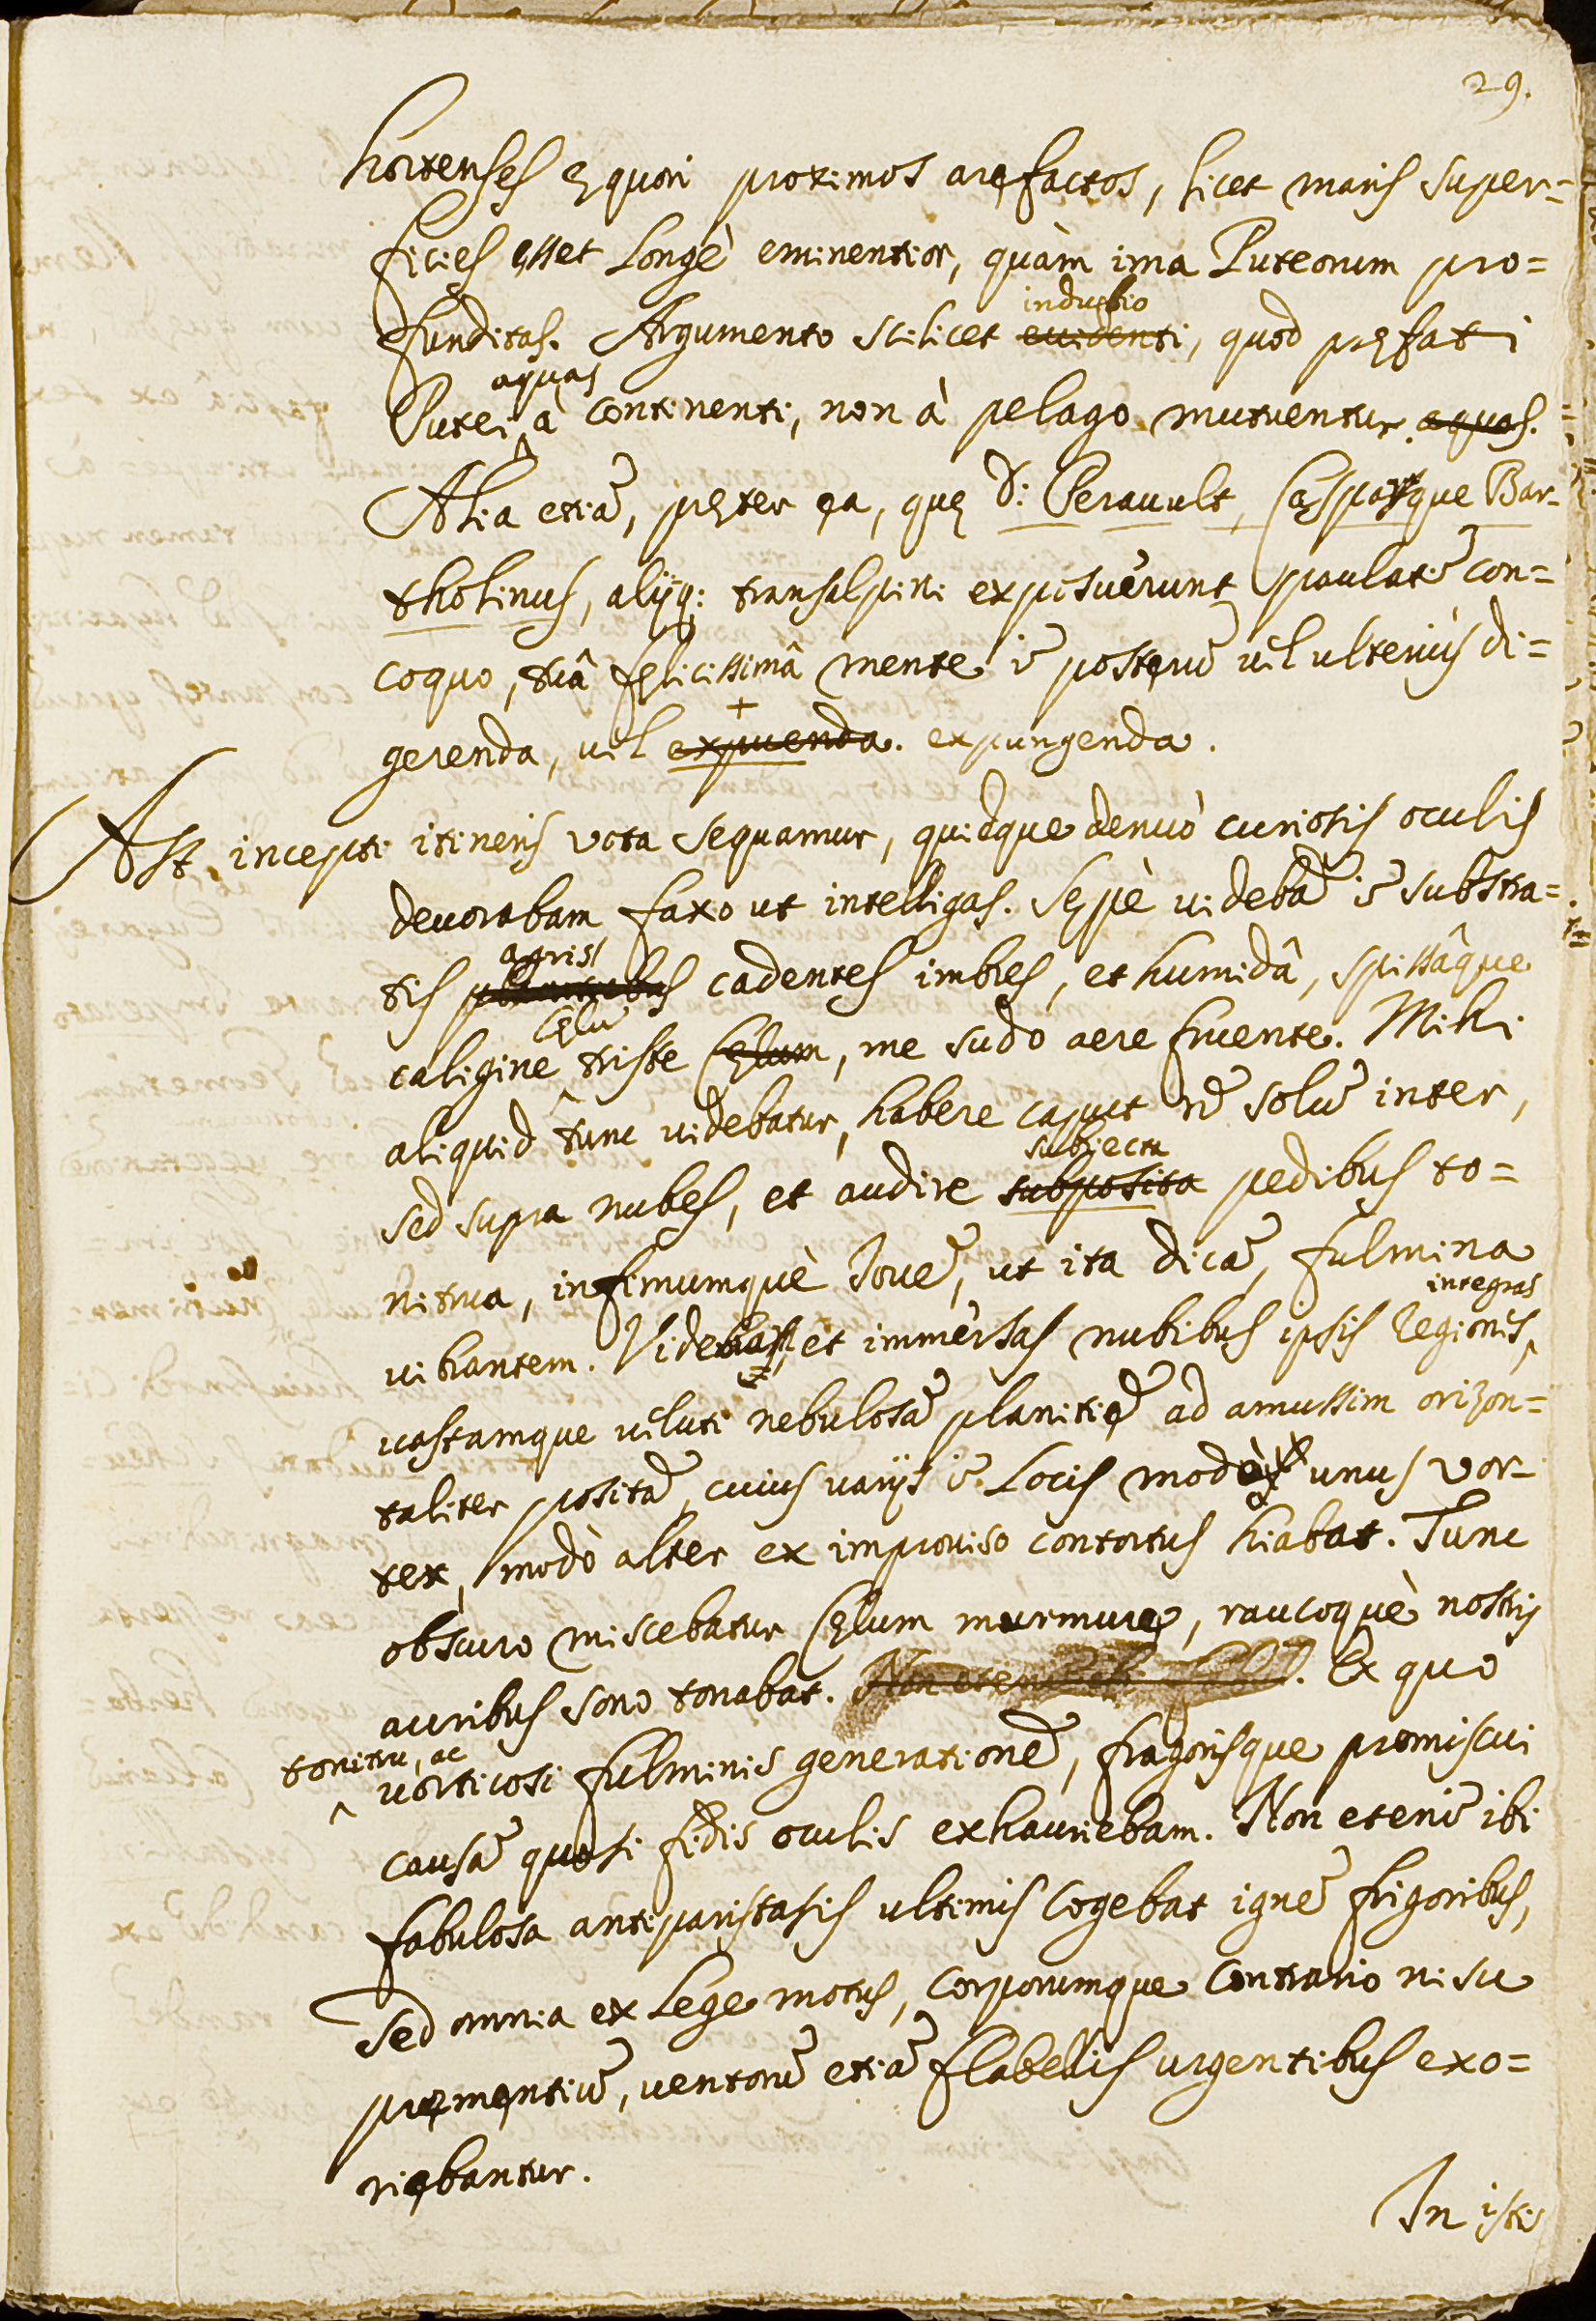 29.
hortenses ęquori proximos arefactos, licet maris super=
ficies esset longè eminentior, quàm ima Puteorum pro=
indubio
funditas. Argumento scilicet euidenti, quod pręfati
aquas
Putei à continenti, non à pelago mutuentur. aquas.
Alia etiā, pręter ea, quę D: Perault, Casparque Bar-
tholinus, alijq: transalpini exposuerunt paulatī con=
coquo, tuâ felicissimâ mente ī posterū uel ulterius di=
+
gerenda, uel expuenda. expungenda.
Ast incepti itineris vota sequamur, quidque denuò curiosis oculis
deuorabam faxo ut intelligas. Sępè uidebā ī substra=
agris
tis cadentes imbres, et humidâ, spissâque
Cęlū
caligine triste Cęlum, me sudo aere fruente. Mihi
aliquid tunc uidebatur, habere caput nō solū inter,
subiecta
sed supra nubes, et audire subposita pedibus to=
nitrua, infimumquè Iouē, ut ita dicā, fulmina
integras
uibrantem. Videbam et immersas nubibus ipsis Regiones,
uastamque ueluti nebulosā planitiē ad amussim orizon=
taliter positā, cuius varijs ī locis modò unus vor-
tex, modò alter ex improuiso contortus hiabat. Tunc
obscuro miscebatur Cęlum murmure, raucoquè nostris
auribus sono tonabat. Non etenim ibi . Ex quo
tonitru, ac
uorticosi fulminis generationē, fragorisque promiscui
causā quasi fidis oculis exhauriebam. Non etenī ibi
fabulosa antiparistasis ultimis cogebat ignē frigoribus,
sed omnia ex lege motus, corporumque contrario nisu
prementiū, uentorū etiā flabellis urgentibus exo=
riebantur.
In istis